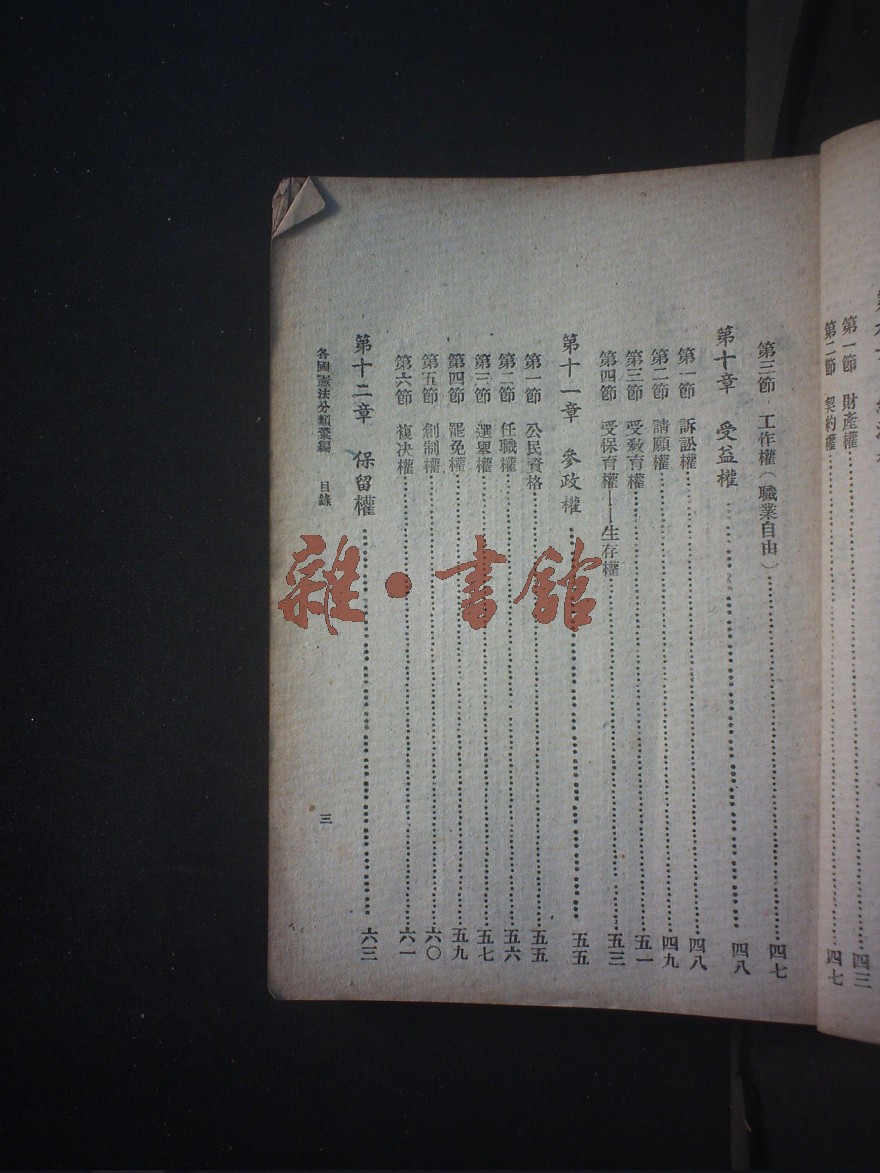 第一節 財產權……四三
第二節 契約權……四七
第三節 工作權（職業自由）……四七
第十章 受益權……四八
第一節 訴訟權……四八
第二節 請願權……四九
第三節 受教育權……五一
第四節 受保育權——生存權……五三
第十一章 參政權……五五
第一節 公民資格……五五
第二節 任職權……五六
第三節 選舉權……五七
第四節 罷免權……五九
第五節 創制權……六〇
第六節 複決權……六一
第十二章 保留權……六三
各國憲法分類彙編 目錄 三
雜·書館